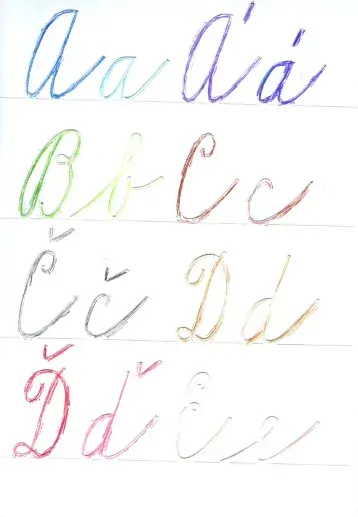 A a Á á
B b C c
Č č D d
Ď ď E e